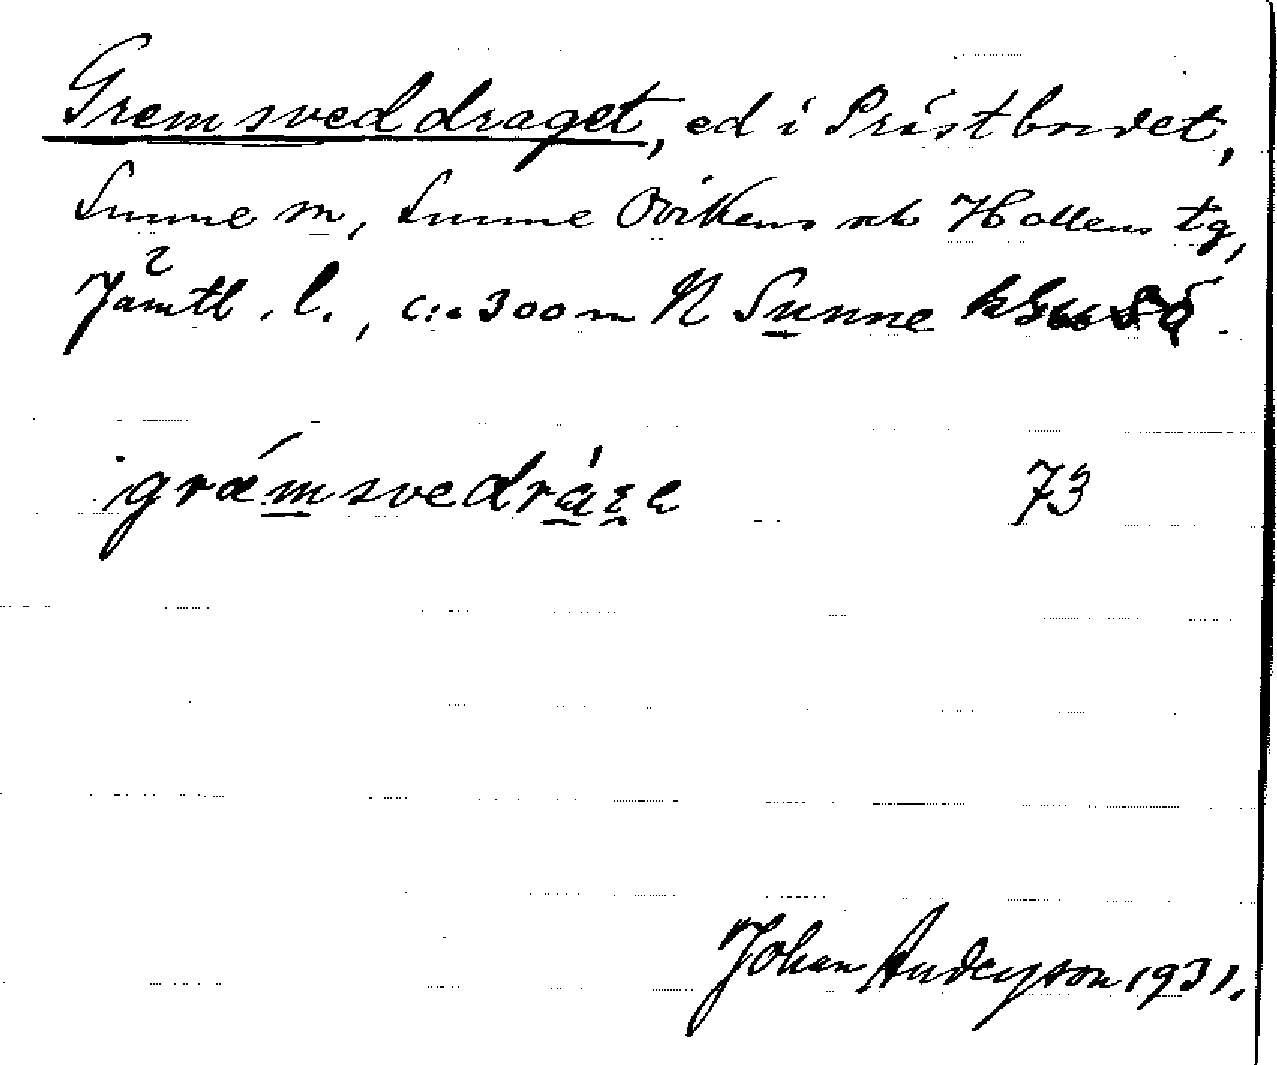 Gremsveddraget, ed i Prästbordet,
Sunne sn, Sunne Ovikens och Hallens tg,
Jämtl. l., c:a 300 m N Sunne
græmsvedraꞬe 73
Johan Anderson 1931.